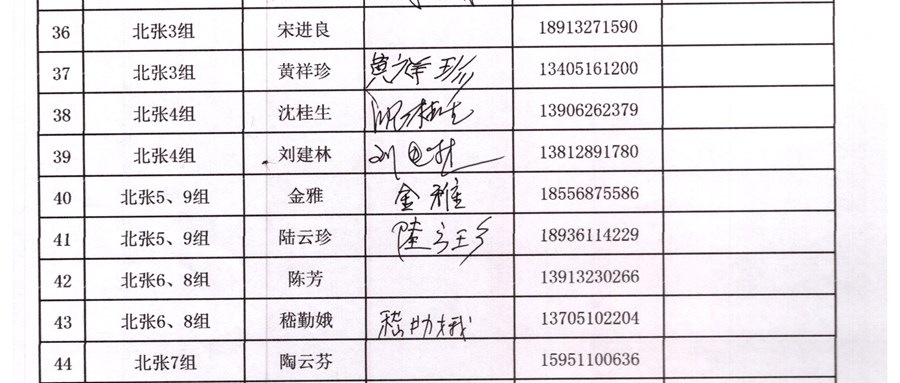 36 北张3组 宋进良 18913271590
37 北张3组 黄祥珍 黄祥珍 13405161200
38 北张4组 沈桂生 沈桂生 13906262379
39 北张4组 刘建林 刘建林 13812891780
40 北张5、9组 金雅 金雅 18556875586
41 北张5、9组 陆云珍 陆云珍 18936114229
42 北张6、8组 陈芳 13913230266
43 北张6、8组 嵇勤娥 嵇勤娥 13705102204
44 北张7组 陶云芬 15951100636